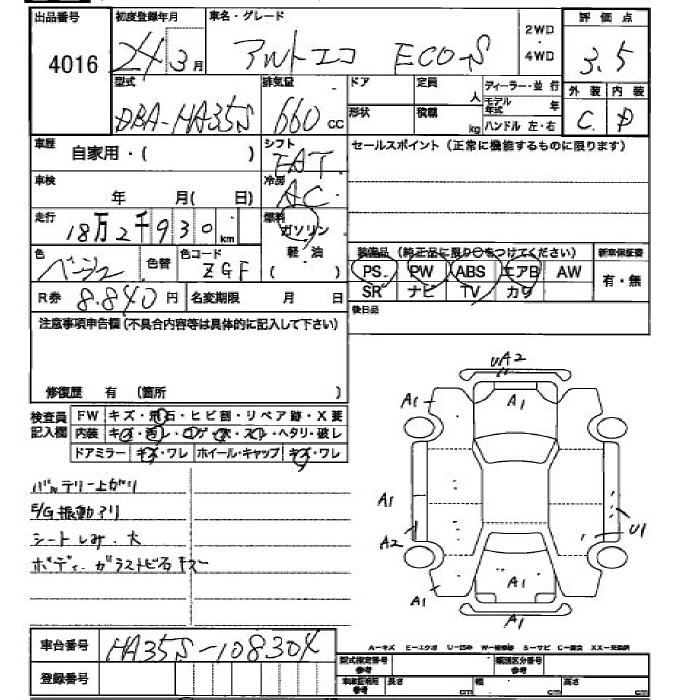 出品番号 初度登録年月 車名・グレード 評価点
4016 24年3月 アルトエコ ECO-S 2WD・4WD 3.5
型式 排気量 ドア 定員 人 ディーラー・並行 外装 内装
DBA-HA35S 660cc 形状 積載 kg モデル年式 年 C D
ハンドル 左・右
車歴 自家用・( ) シフト FAT セールスポイント(正常に機能するものに限ります)
車検 年 月( 日) 冷房 AC
走行 18万2千930km 燃料 ガソリン
色 ベージュ 色替 色コード ZGF 軽・油 ( )
装備品(純正品に限り○をつけてください) 新車保証書
PS. PW ABS エアB AW 有・無
SR ナビ TV カワ
R券 8.840円 名変期限 月 日 後日品
注意事項申告欄(不具合内容等は具体的に記入して下さい)
修復歴 有 (箇所 )
検査員記入欄 FW キズ・飛石・ヒビ割・リペア跡・X要
内装 キズ・汚レ・コゲ・穴・スレ・ヘタリ・破レ
ドアミラー キズ・ワレ ホイール・キャップ キズ・ワレ
バッテリー上がり
E/G振動アリ
シートしみ・大
ボディ・ガラストビ石キズ
UA2
A1 A1
A1
A2 U1
A1
A1 A1
車台番号 HA35S-108304
登録番号
A-キズ E-エクボ U-凹み W-補修跡 S-サビ C-腐食 XX-交換済
型式指定番号 参考 類別区分番号 参考
車庫証明用 参考 長さ cm 幅 cm 高さ cm